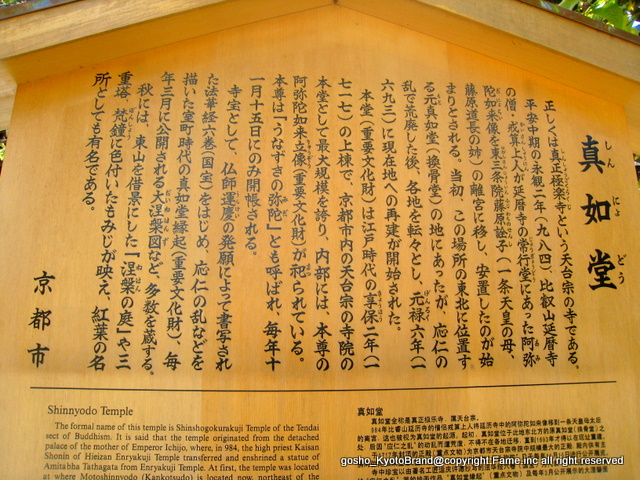 真如堂
しん にょ どう
正しくは真正極楽寺という天台宗の寺である。
平安中期の永観二年（九八四）、比叡山延暦寺
の僧・戒算上人が延暦寺の常行堂にあった阿弥
陀如来像を東三条院藤原詮子（一条天皇の母、
藤原道長の姉）の離宮に移し、安置したのが始
まりとされる。当初、この場所の東北に位置す
る元真如堂（換骨堂）の地にあったが、応仁の
乱で荒廃した後、各地を転々とし、元禄六年（一
六九三）に現在地への再建が開始された。
本堂（重要文化財）は江戸時代の享保二年（一
七一七）の上棟で、京都市内の天台宗の寺院の
本堂として最大規模を誇り、内部には、本尊の
阿弥陀如来立像（重要文化財）が祀られている。
本尊は「うなずきの弥陀」とも呼ばれ、毎年十
一月十五日にのみ開帳される。
寺宝として、仏師運慶の発願によって書写され
た法華経六巻（国宝）をはじめ、応仁の乱などを
描いた室町時代の真如堂縁起（重要文化財）、毎
年三月に公開される大涅槃図など、多数を蔵する。
秋には、東山を借景にした「涅槃の庭」や三
重塔、梵鐘に色付いたもみじが映え、紅葉の名
所としても有名である。
京都市
Shinnyodo Temple
The formal name of this temple is Shinshogokurakuji Temple of the Tendai
sect of Buddhism. It is said that the temple originated from the detached
palace of the mother of Emperor Ichijo, where, in 984, the high priest Kaisan
Shonin of Hieizan Enryakuji Temple transferred and enshrined a statue of
Amitabha Tathagata from Enryakuji Temple. At first, the temple was located
at where Motoshinnyodo (Kankotsudo) is located now, northeast of the
真如堂
真如堂全称是真正极乐寺，属天台宗。
gosho_KyotoBrand@copyright Fame inc all rights reserved